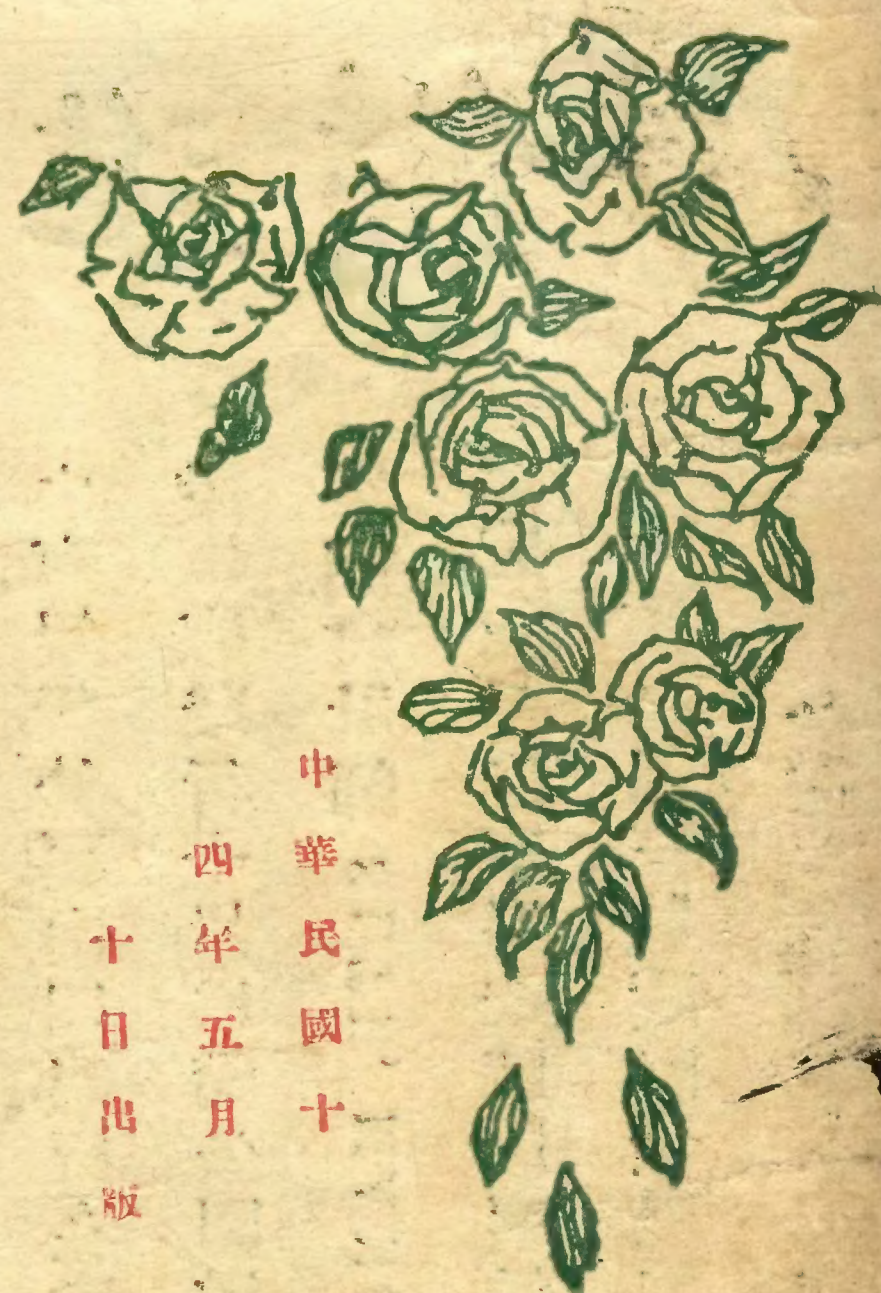 中華民國十
四年五月
十日出版